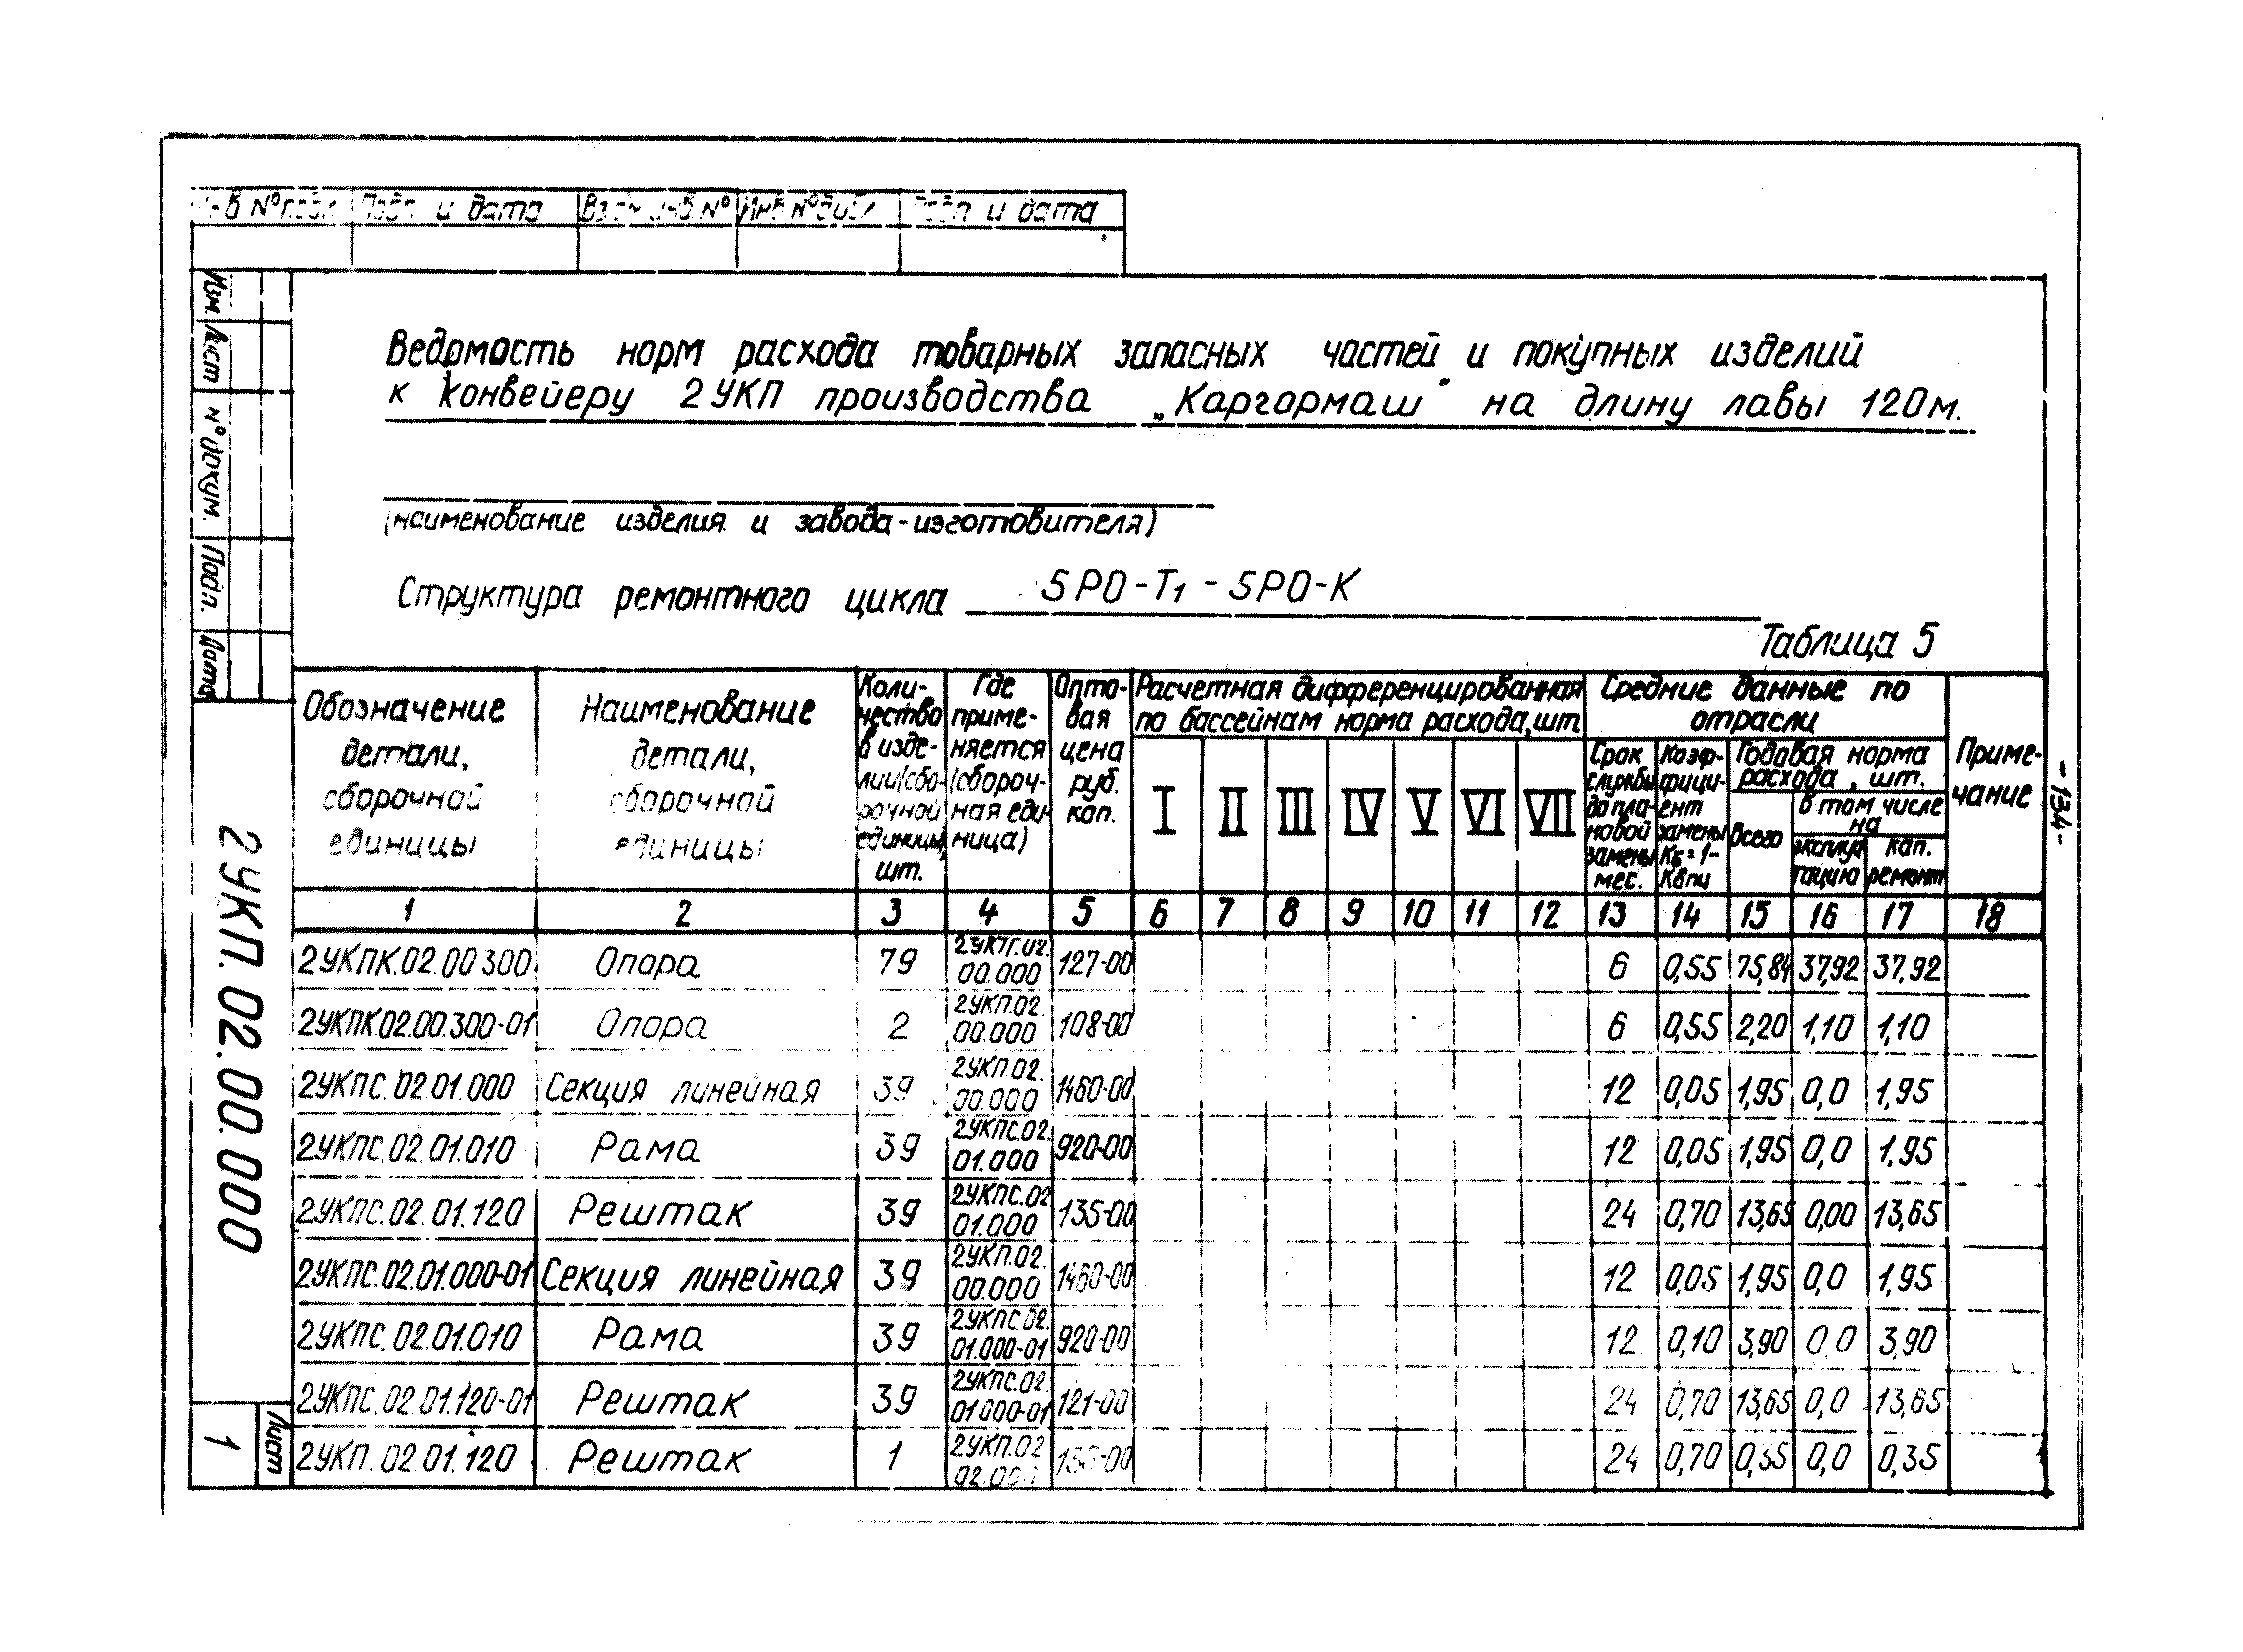 Подп. и дата
Взам. инв. №
Инв. № дубл.
Подп. и дата
Изм. Лист № докум. Подп. Дата
2УКП. 02. 00. 000
Лист
1
-134-
Ведомость норм расхода товарных запасных частей и покупных изделий
к конвейеру 2УКП производства „Каргормаш" на длину лавы 120м.
(наименование изделия и завода-изготовителя)
Структура ремонтного цикла 5РО-Т1 - 5РО-К
Таблица 5
Обозначение детали, сборочной единицы
Наименование детали, сборочной единицы
Коли-
чество
в изде-
лии(сбо-
рочной
единицы,
шт.
Где
приме-
няется
(сбороч-
ная еди-
ница)
Опто-
вая
цена
руб.
коп.
Расчетная дифференцированная
по бассейнам норма расхода,шт
I II III IV V VI VII
Средние данные по
отрасли
Срок
службы
до пла-
новой
замены
мес.
Коэф-
фици-
ент
замены
Кб=1-
Квпи
Годовая норма
расхода, шт.
Всего
в том числе
на
эксплуа
тацию
кап.
ремонт
Приме-
чание
1 2 3 4 5 6 7 8 9 10 11 12 13 14 15 16 17 18
2УКПК.02.00 300 Опора 79 2УКП.02. 00.000 127-00 6 0,55 75,84 37,92 37,92
2УКПК.02.00.300-01 Опора 2 2УКП.02. 00.000 108-00 6 0,55 2,20 1,10 1,10
2УКПС.02.01.000 Секция линейная 39 2УКП.02. 00.000 1460-00 12 0,05 1,95 0,0 1,95
2УКПС.02.01.010 Рама 39 2УКПС.02. 01.000 920-00 12 0,05 1,95 0,0 1,95
2УКПС.02.01.120 Рештак 39 2УКПС.02 01.000 135-00 24 0,70 13,65 0,00 13,65
2УКПС.02.01.000-01 Секция линейная 39 2УКП.02. 00.000 1460-00 12 0,05 1,95 0,0 1,95
2УКПС.02.01.010 Рама 39 2УКПС.02. 01.000-01 920-00 12 0,10 3,90 0,0 3,90
2УКПС.02.01.120-01 Рештак 39 2УКПС.02. 01.000-01 121-00 24 0,70 13,65 0,0 13,65
2УКП.02.01.120 Рештак 1 2УКП.02 24 0,70 0,35 0,0 0,35